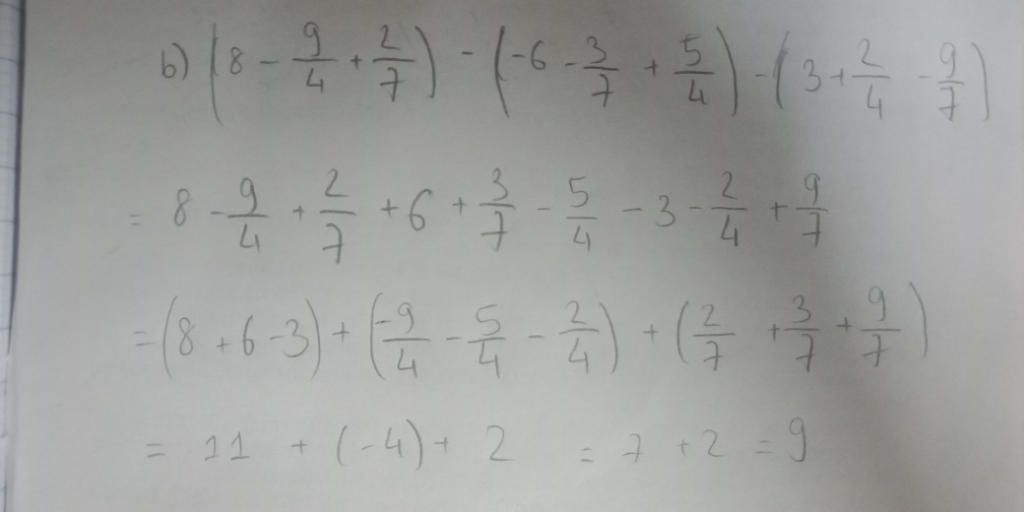 b) (8 - 9/4 + 2/7) - (-6 - 3/7 + 5/4) - (3 + 2/4 - 9/7)
= 8 - 9/4 + 2/7 + 6 + 3/7 - 5/4 - 3 - 2/4 + 9/7
= (8 + 6 - 3) + (-9/4 - 5/4 - 2/4) + (2/7 + 3/7 + 9/7)
= 11 + (-4) + 2 = 7 + 2 = 9